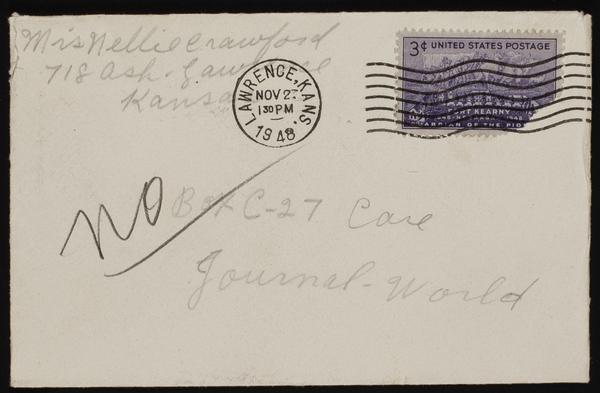 Mrs Nellie Crawford
718 Ash - Lawrence
Kansas
LAWRENCE, KANS.
NOV 2
1 30 PM
1948
3¢ UNITED STATES POSTAGE
KEARNY
OF THE
NO
Box C-27 Care
Journal-World